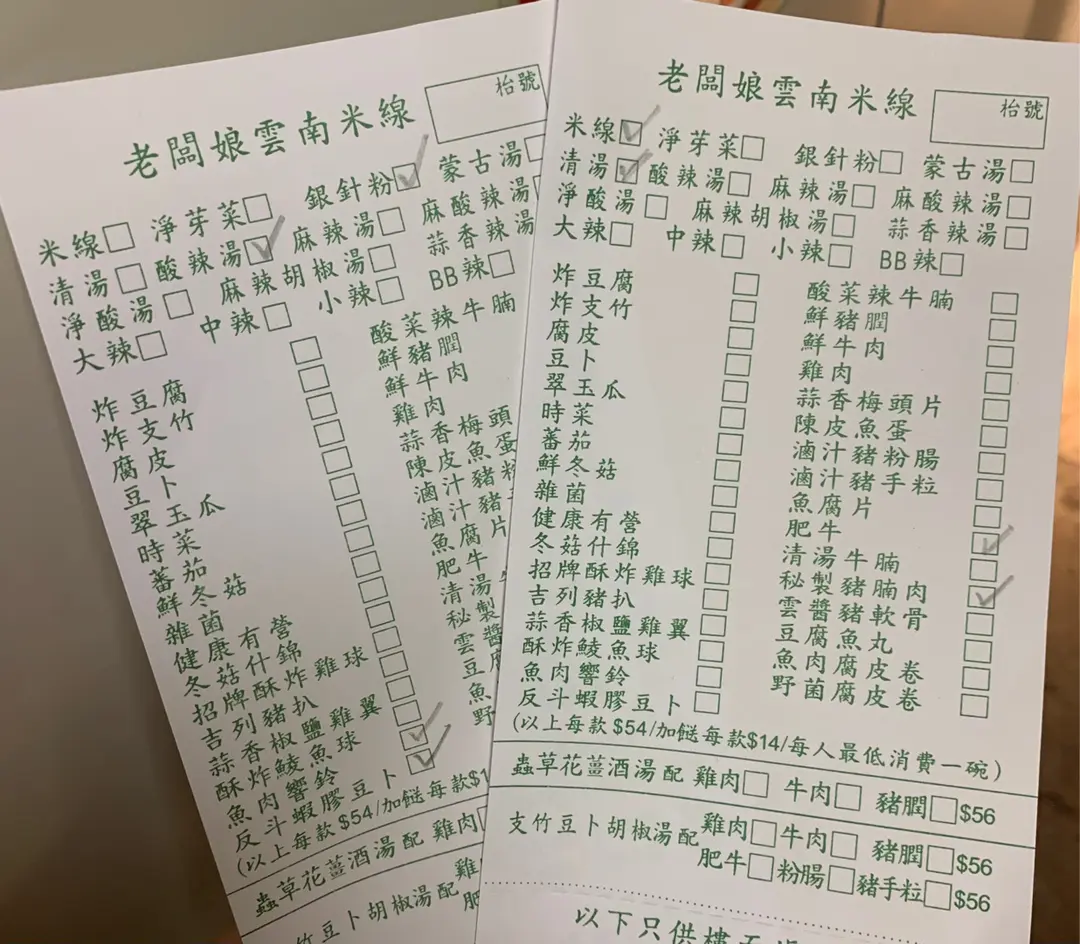 老闆娘雲南米線
枱號
米線 淨芽菜 銀針粉 蒙古湯
清湯 酸辣湯 麻辣湯 麻酸辣湯
淨酸湯 麻辣胡椒湯 蒜香辣湯
大辣 中辣 小辣 BB辣
炸豆腐
炸支竹
腐皮
豆卜
翠玉瓜
時菜
蕃茄
鮮冬菇
雜菌
健康有營
冬菇什錦
招牌酥炸雞球
吉列豬扒
蒜香椒鹽雞翼
酥炸鯪魚球
魚肉響鈴
反斗蝦膠豆卜
酸菜辣牛腩
鮮豬膶
鮮牛肉
雞肉
蒜香梅頭
陳皮魚蛋
滷汁豬粉
滷汁豬
魚腐片
肥牛
清湯
秘製
雲醬
豆
魚
野
(以上每款$54/加餸每款$1
蟲草花薑酒湯配 雞肉
竹豆卜胡椒湯配 雞
肥
老闆娘雲南米線
枱號
米線 淨芽菜 銀針粉 蒙古湯
清湯 酸辣湯 麻辣湯 麻酸辣湯
淨酸湯 麻辣胡椒湯 蒜香辣湯
大辣 中辣 小辣 BB辣
炸豆腐
炸支竹
腐皮
豆卜
翠玉瓜
時菜
蕃茄
鮮冬菇
雜菌
健康有營
冬菇什錦
招牌酥炸雞球
吉列豬扒
蒜香椒鹽雞翼
酥炸鯪魚球
魚肉響鈴
反斗蝦膠豆卜
酸菜辣牛腩
鮮豬膶
鮮牛肉
雞肉
蒜香梅頭片
陳皮魚蛋
滷汁豬粉腸
滷汁豬手粒
魚腐片
肥牛
清湯牛腩
秘製豬腩肉
雲醬豬軟骨
豆腐魚丸
魚肉腐皮卷
野菌腐皮卷
(以上每款$54/加餸每款$14/每人最低消費一碗)
蟲草花薑酒湯配 雞肉 牛肉 豬膶 $56
支竹豆卜胡椒湯配 雞肉 牛肉 豬膶 $56
肥牛 粉腸 豬手粒 $56
以下只供樓